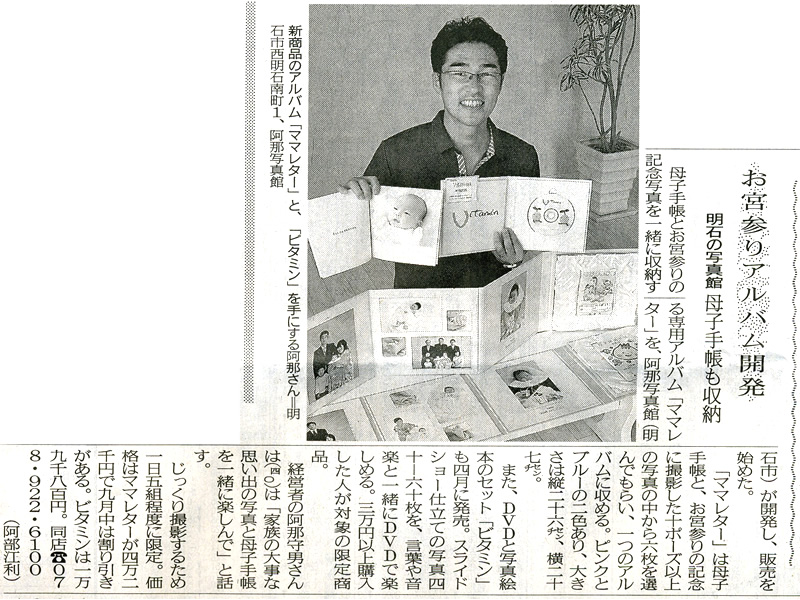 お宮参りアルバム開発
明石の写真館 母子手帳も収納
母子手帳とお宮参りの
記念写真を一緒に収納す
る専用アルバム「ママレ
ター」を、阿那写真館（明
石市）が開発し、販売を
始めた。
「ママレター」は母子
手帳と、お宮参りの記念
に撮影した十ポーズ以上
の写真の中から六枚を選
んでもらい、一つのアル
バムに収める。ピンクと
ブルーの二色あり、大き
さは縦二十六㌢、横二十
七㌢。
また、DVDと写真絵
本のセット「ビタミン」
も四月に発売。スライド
ショー仕立ての写真四
十―六十枚を、言葉や音
楽と一緒にDVDで楽
しめる。三万円以上購入
した人が対象の限定商
品。
経営者の阿那 男さん
は は「家族の大事な
思い出の写真と母子手帳
を一緒に楽しんで」と話
す。
じっくり撮影するため
一日五組程度に限定。価
格はママレターが四万二
千円で九月中は割り引き
がある。ビタミンは一万
九千八百円。同店☎07
8・922・6100
（阿部江利）
新商品のアルバム「ママレター」と、「ビタミン」を手にする阿那さん＝明
石市西明石南町1、阿那写真館
Vitamin